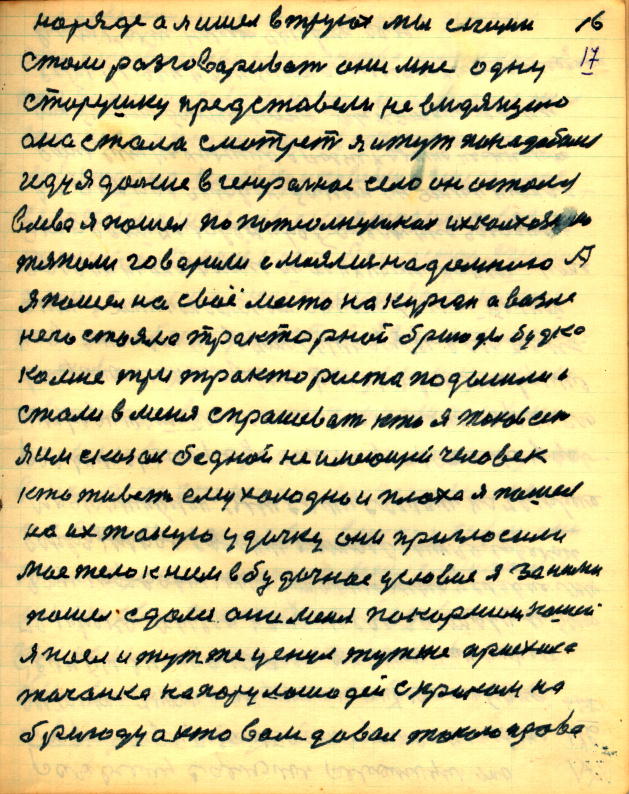 наряде а я ишел в трусах мы с ними 16
стали разговариват они мне одну 17
старушку предстовели не видящию
она стала смотрет я и тут понадобался
иду я дальше в генералное село он остался
влева я пошел по их колхозному
тяпали говарили смиялися надомною А
я пошел на своё место на курган а возле
него стояла тракторной бригады будка
ка мне три тракториста подышли и
стали в меня спрашеват кто я таков сен
я им сказал бедной не имеющей человек
кто живеть ему холодно и плоха я пошел
на их такую удочку они пригласили
мае тело к ним в будочное условие я за ними
пошел сдался они меня покормили кашей
я поел и тут же уснул тут же приехала
тачанка на пару лошадей с криком на
бригаду а кто вам давал такою права